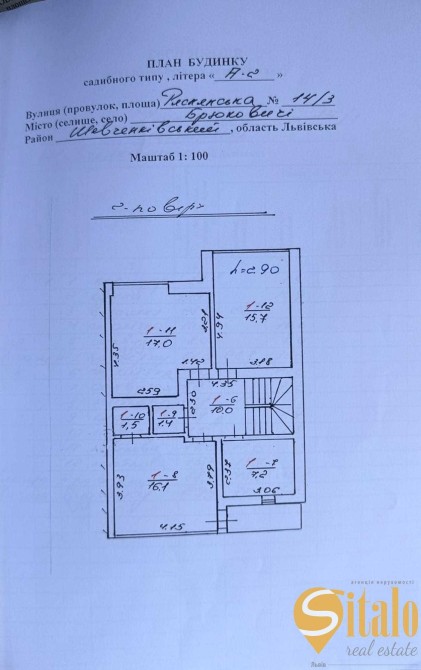 ПЛАН БУДИНКУ
садибного типу , літера « А-2 »
Вулиця (провулок, площа) Ряснянська № 14/3
Місто (селище, село) Брюховичі
Район Шевченківський , область Львівська
Маштаб 1: 100
2-поверх
h=2.90
1-11
17,0
4.35
2.59
1.42
1-12
15,7
4.94
3.18
4.35
1-6
10.0
2.30
1-10
1,5
1-9
1.4
1-8
16,1
3.93
3.79
4.15
1-7
7,2
2.37
3.06
агенція нерухомості
Sitalo
real estate
Львів